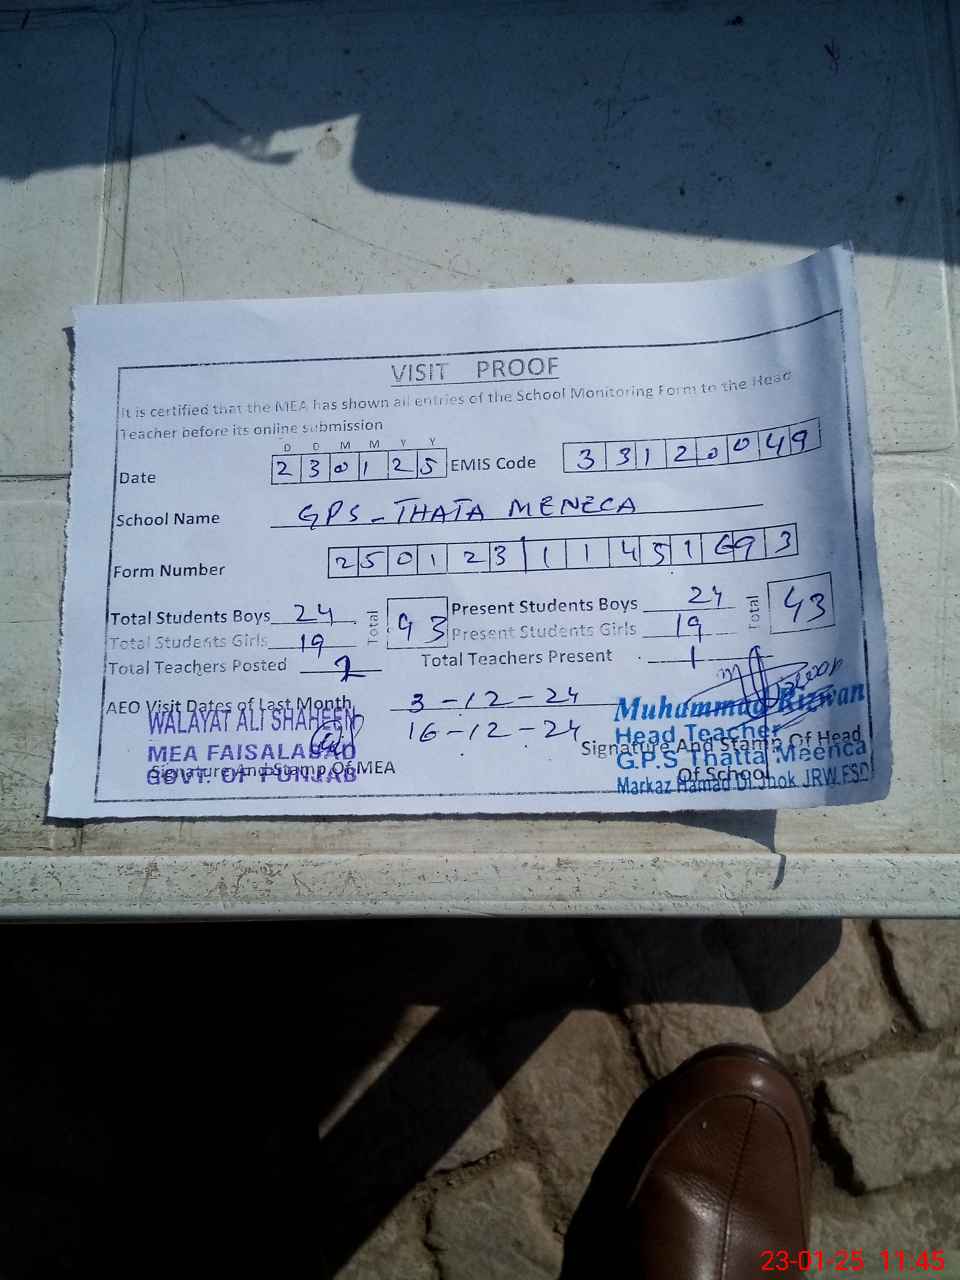 VISIT PROOF
It is certified that the MEA has shown all entries of the School Monitoring Form to the Head
Teacher before its online submission
D D M M Y Y
Date 2 3 0 1 2 5 EMIS Code 3 3 1 2 0 0 4 9
School Name GPS-THATA MENECA
Form Number 2 5 0 1 2 3 1 1 4 5 1 6 9 3
Total Students Boys 24 Total 43 Present Students Boys 24 Total 43
Total Students Girls 19 Present Students Girls 19
Total Teachers Posted 2 Total Teachers Present 1
AEO Visit Dates of Last Month 3-12-24
16-12-24
WALAYAT ALI SHAHEEN
MEA FAISALABAD
GOVT. OF PUNJAB
Signature And Stamp Of MEA
Muhammad Rizwan
Head Teacher
G.P.S Thatta Meenca
Markaz Hamad Di Jhok JRW.FSD
Signature And Stamp Of Head
Of School
23-01-25 11:45